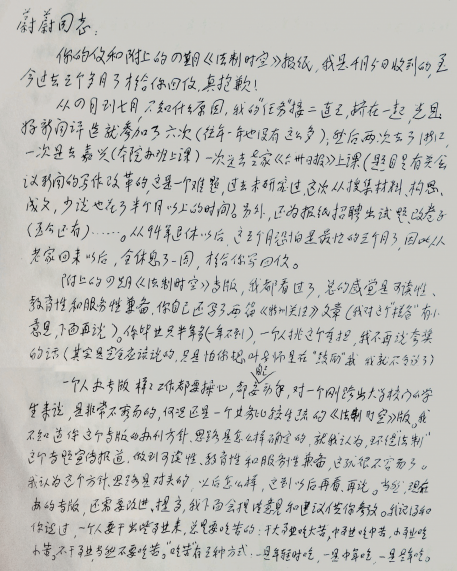 蔚蔚同志：
你的信和附上的4期《法制时空》报纸，我是4月5日收到的，至
今过去三个多月了才给你回信，真抱歉！
从4月到七月，不知什么原因，我的"任务"接二连三，挤在一起，光是
好新闻评选就参加了六次（往年一年也没有这么多），然后两次去了浙江，
一次是去嘉兴（本院办班上课）一次是去老家《台州日报》上课（题目是有关会
议新闻的写作改革的，这是一个难题，过去未研究过，这次从搜集材料、构思、
成文，少说也花了半个月以上的时间。另外，还为报纸招聘出试题改卷子
（至今还有）……。从94年退休以后，这三个月恐怕是最忙的三个月了，因此从
老家回来以后，全休息了一周，才给你写回信。
附上的4期《法制时空》专版，我都看过了，总的感觉是可读性、
教育性和服务性兼备，你自己还写了两篇《 关注》文章（我对这个"提名"有小
意见，下面再说）。你毕业只半年多（一年不到），一个人挑这个重担，我不再说夸奖
的话（其实是完全应该说的，只是怕你把叶老师是在"鼓励"我 我就不多说了）
一个人办专版 样样工作都要操心，都要劳神，对一个刚跨出大学校门的学
生来说，是非常不容易的，何况还是一个业务比较生疏的《法制时空》版。我
不知道你这个专版的办刊方针、思路是怎么样确定的，就我认为，环绕法制
这个专题宣传报道，做到可读性、教育性和服务性兼备，这就很不容易了。
我认为这个方针、思路是对头的，以后怎么样，这到以后再看、再说。当然，现在
办的专版，还需要改进、提高，我下面会提些意见和建议供你参考。我记得和
你说过，一个人要干出些事业来，总是要吃苦的：干大事业吃大苦，中事业吃中苦，小事业吃
小苦。不干事业当然不要吃苦。"吃苦"有三种方式：一是年轻时吃，一是中年吃，一是老年吃。